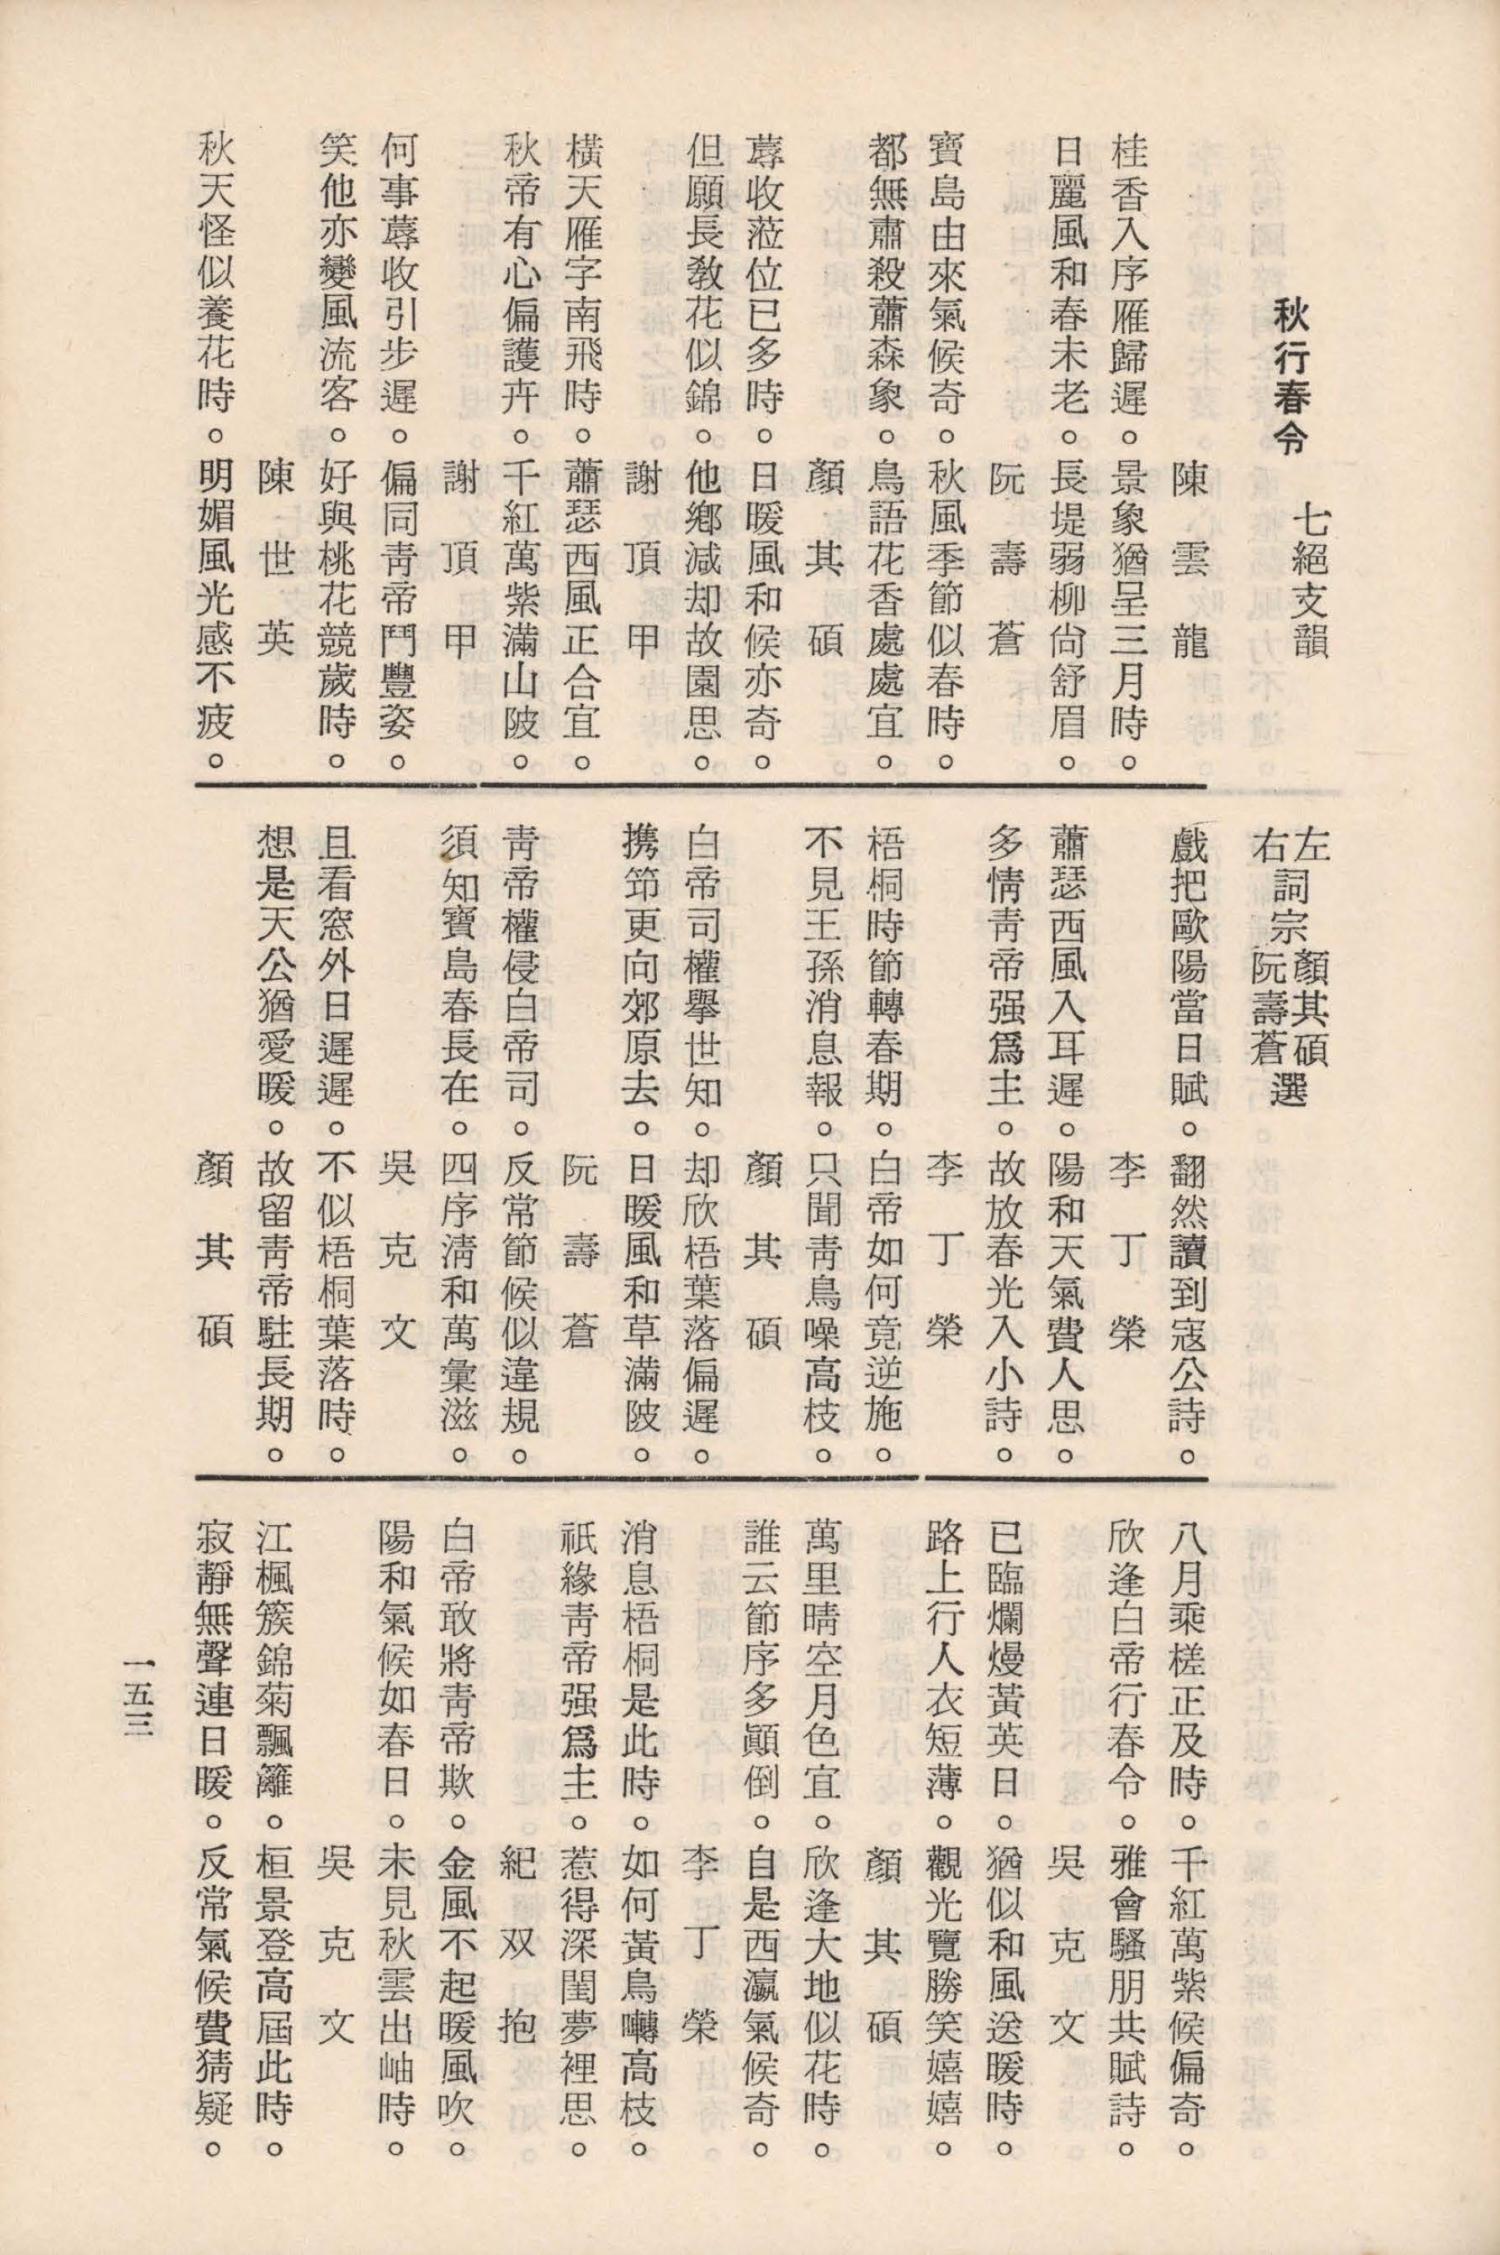 秋行春令　七絕支韻
左詞宗顏其碩選
右詞宗阮壽蒼選
陳雲龍
桂香入序雁歸遲。景象猶呈三月時。
日麗風和春未老。長堤弱柳尙舒眉。
阮壽蒼
寶島由來氣候奇。秋風季節似春時。
都無肅殺蕭森象。鳥語花香處處宜。
顏其碩
蓐收蒞位已多時。日暖風和候亦奇。
但願長敎花似錦。他鄕減却故園思。
謝頂甲
橫天雁字南飛時。蕭瑟西風正合宜。
秋帝有心偏護卉。千紅萬紫滿山陂。
謝頂甲
何事蓐收引步遲。偏同靑帝鬥豐姿。
笑他亦變風流客。好與桃花競歲時。
陳世英
秋天怪似養花時。明媚風光感不疲。
戲把歐陽當日賦。翻然讀到寇公詩。
李丁榮
蕭瑟西風入耳遲。陽和天氣費人思。
多情靑帝强爲主。故放春光入小詩。
李丁榮
梧桐時節轉春期。白帝如何竟逆施。
不見王孫消息報。只聞靑鳥噪高枝。
顏其碩
白帝司權擧世知。却欣梧葉落偏遲。
携笻更向郊原去。日暖風和草滿陂。
阮壽蒼
靑帝權侵白帝司。反常節候似違規。
須知寶島春長在。四序淸和萬彙滋。
吳克文
且看窓外日遲遲。不似梧桐葉落時。
想是天公猶愛暖。故留靑帝駐長期。
顏其碩
八月乘槎正及時。千紅萬紫候偏奇。
欣逢白帝行春令。雅會騷朋共賦詩。
吳克文
已臨爛熳黃英日。猶似和風送暖時。
路上行人衣短薄。觀光覽勝笑嬉嬉。
顏其碩
萬里晴空月色宜。欣逢大地似花時。
誰云節序多顚倒。自是西瀛氣候奇。
李丁榮
消息梧桐是此時。如何黃鳥囀高枝。
祇緣靑帝强爲主。惹得深閨夢裡思。
紀双抱
白帝敢將靑帝欺。金風不起暖風吹。
陽和氣候如春日。未見秋雲出岫時。
吳克文
江楓簇錦菊飄籬。桓景登高屆此時。
寂靜無聲連日暖。反常氣候費猜疑。
一五三